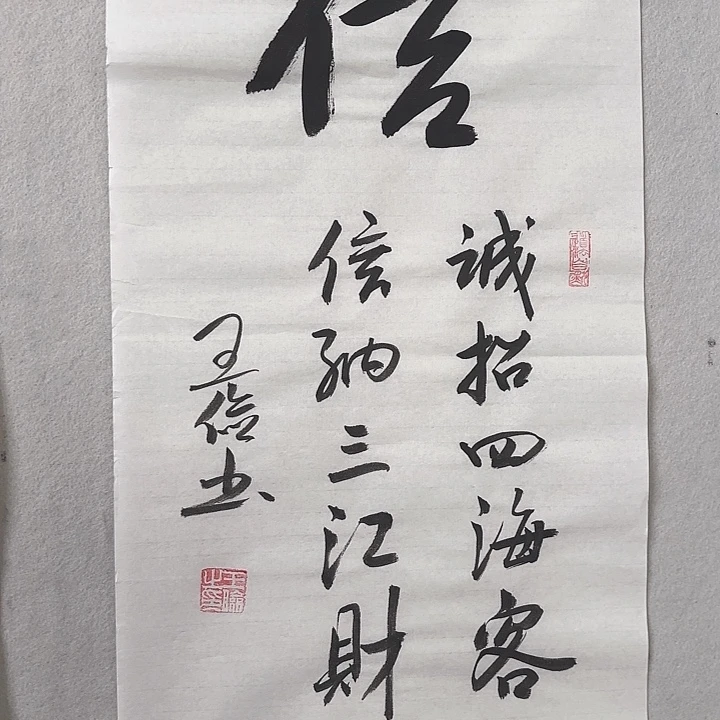 信
誠招四海客
信纳三江財
王俭书